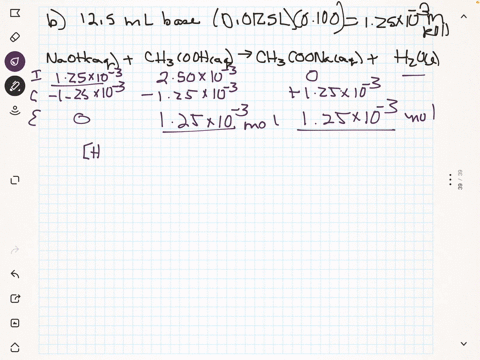 b) 12.5 mL base (0.0125L)(0.100) = 1.25×10⁻³ mol
NaOH(aq) + CH₃COOH(aq) → CH₃COONa(aq) + H₂O(l)
I 1.25×10⁻³ 2.50×10⁻³ 0 —
C -1.25×10⁻³ -1.25×10⁻³ +1.25×10⁻³
E 0 1.25×10⁻³ mol 1.25×10⁻³ mol
[H